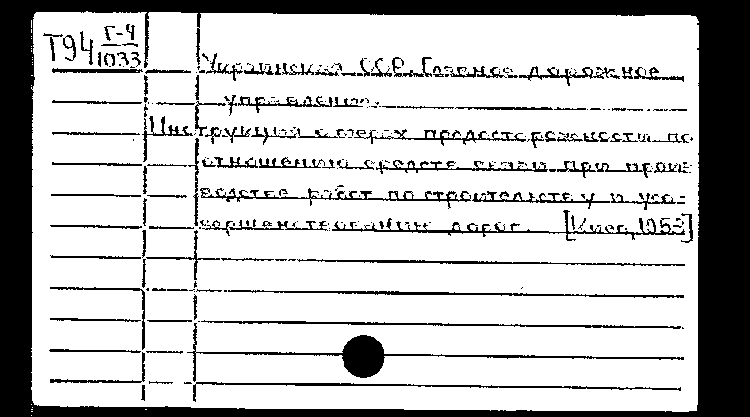 Т94 Г-4
1033
Украинская ССР. Главное дорожное
управление.
Инструкция о мерах предосторожности по
отношению средств связи при произ-
водстве работ по строительству и усо-
вершенствованию дорог. [Киев, 1953]